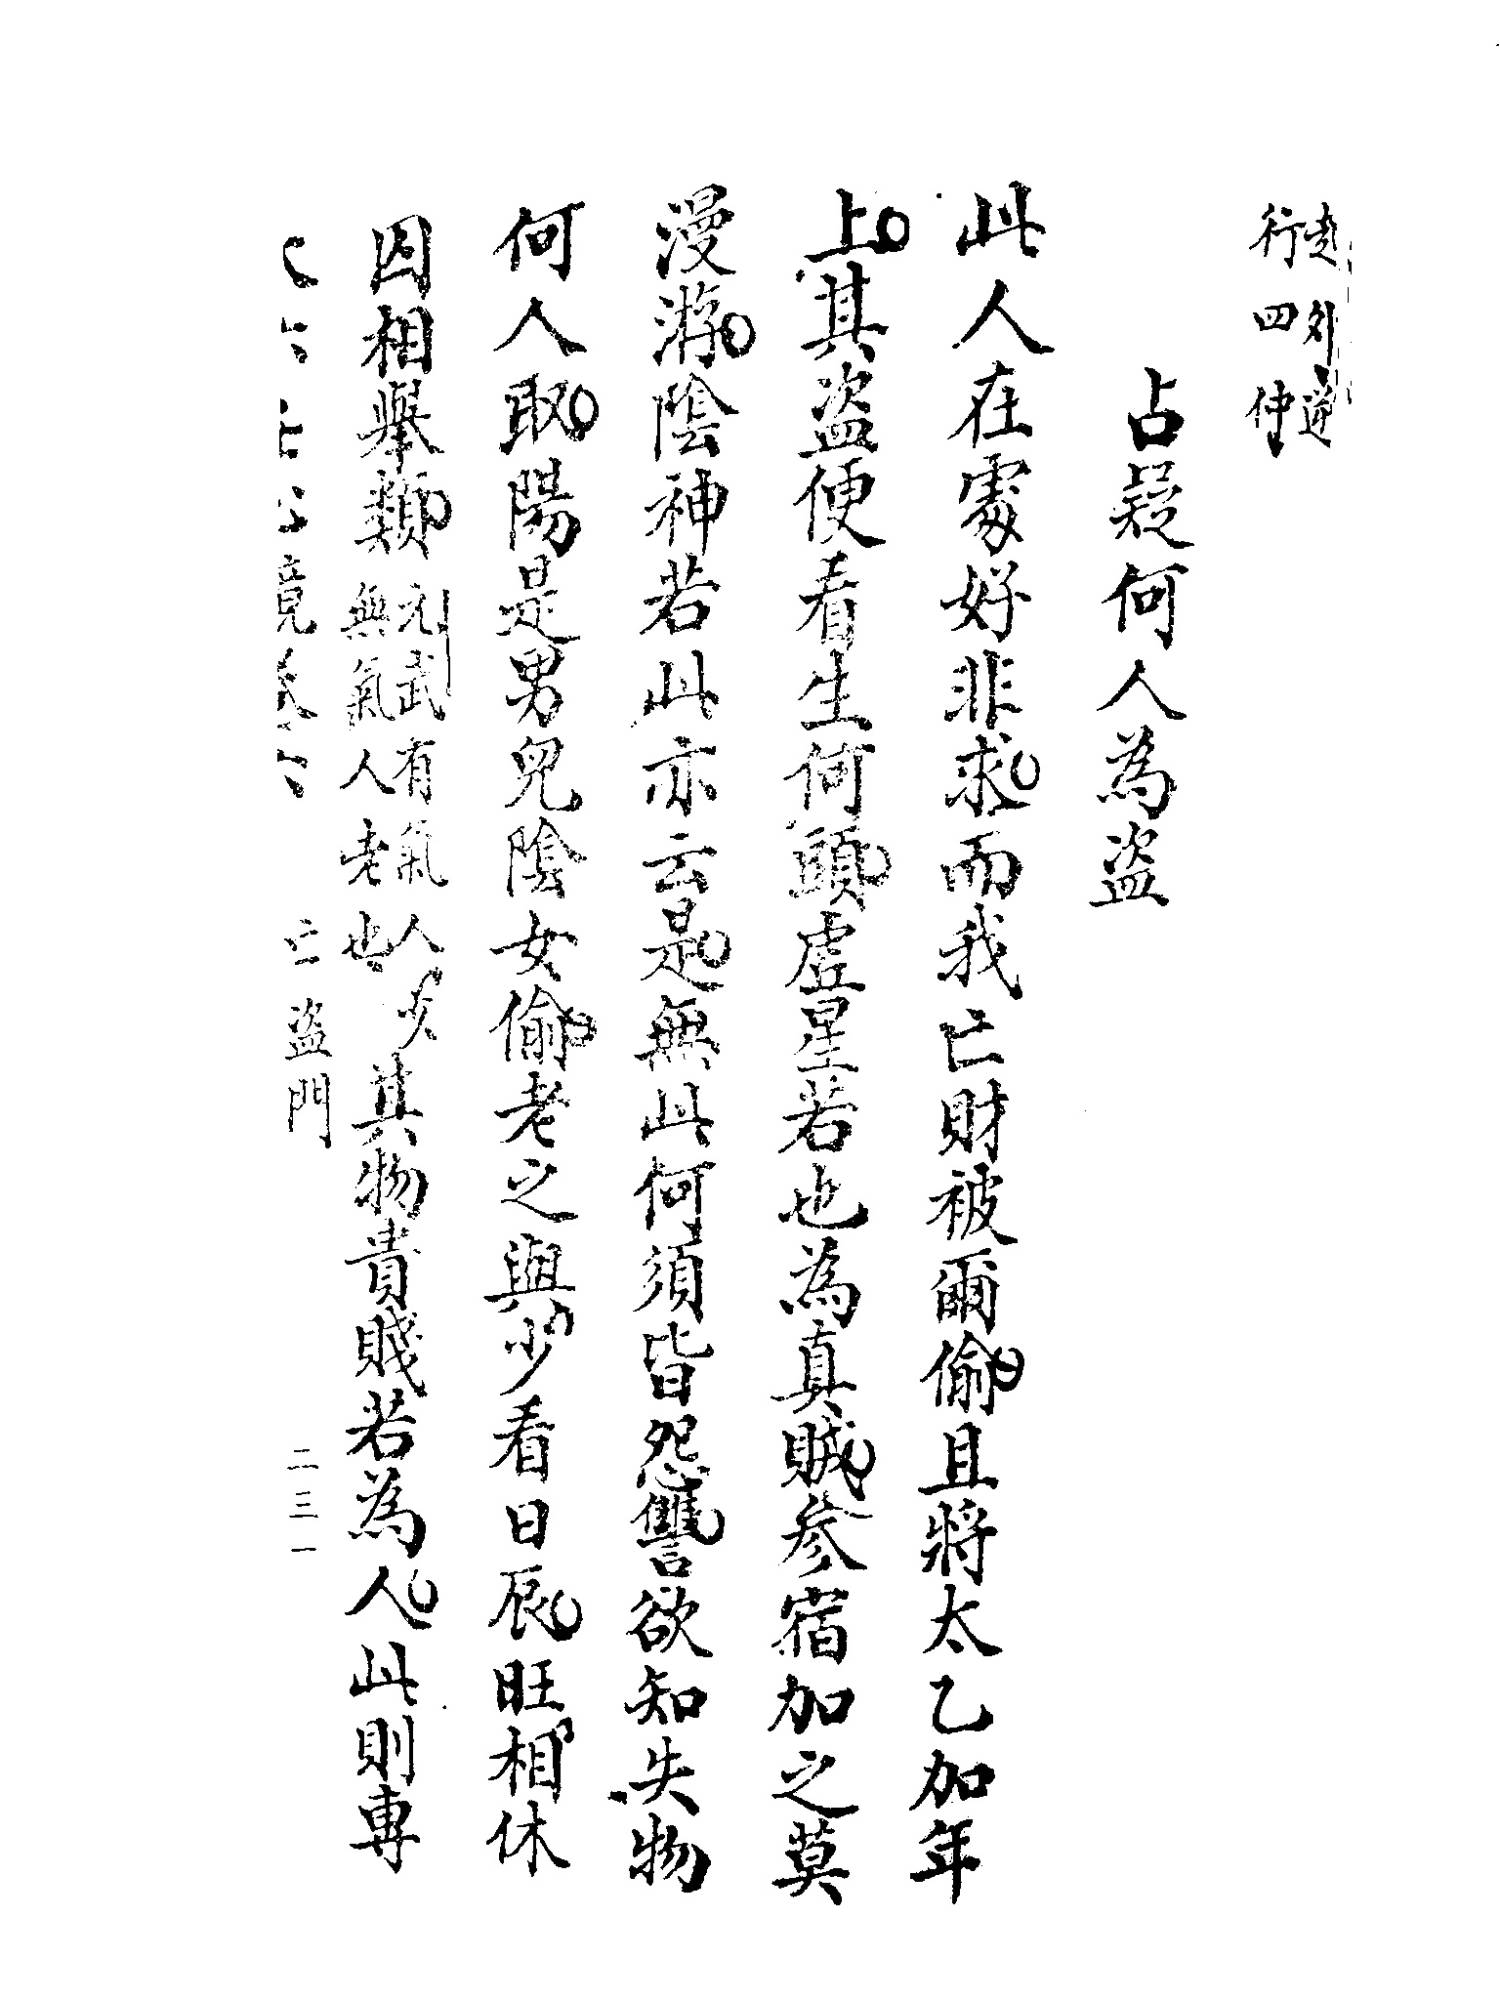 走外逆
行四仲
占疑何人為盜
此人在處好非求而我亡財被爾偷且將太乙加年
上其盜便看生何頭虛星若也為真賊參宿加之莫
漫游陰神若此亦云是無此何須皆怨讐欲知失物
何人取陽是男兒陰女偷老之與少看日辰旺相休
囚相舉類
元武有氣人少
無氣人老也
其物貴賤若為人此則專
亡盜門
二三一